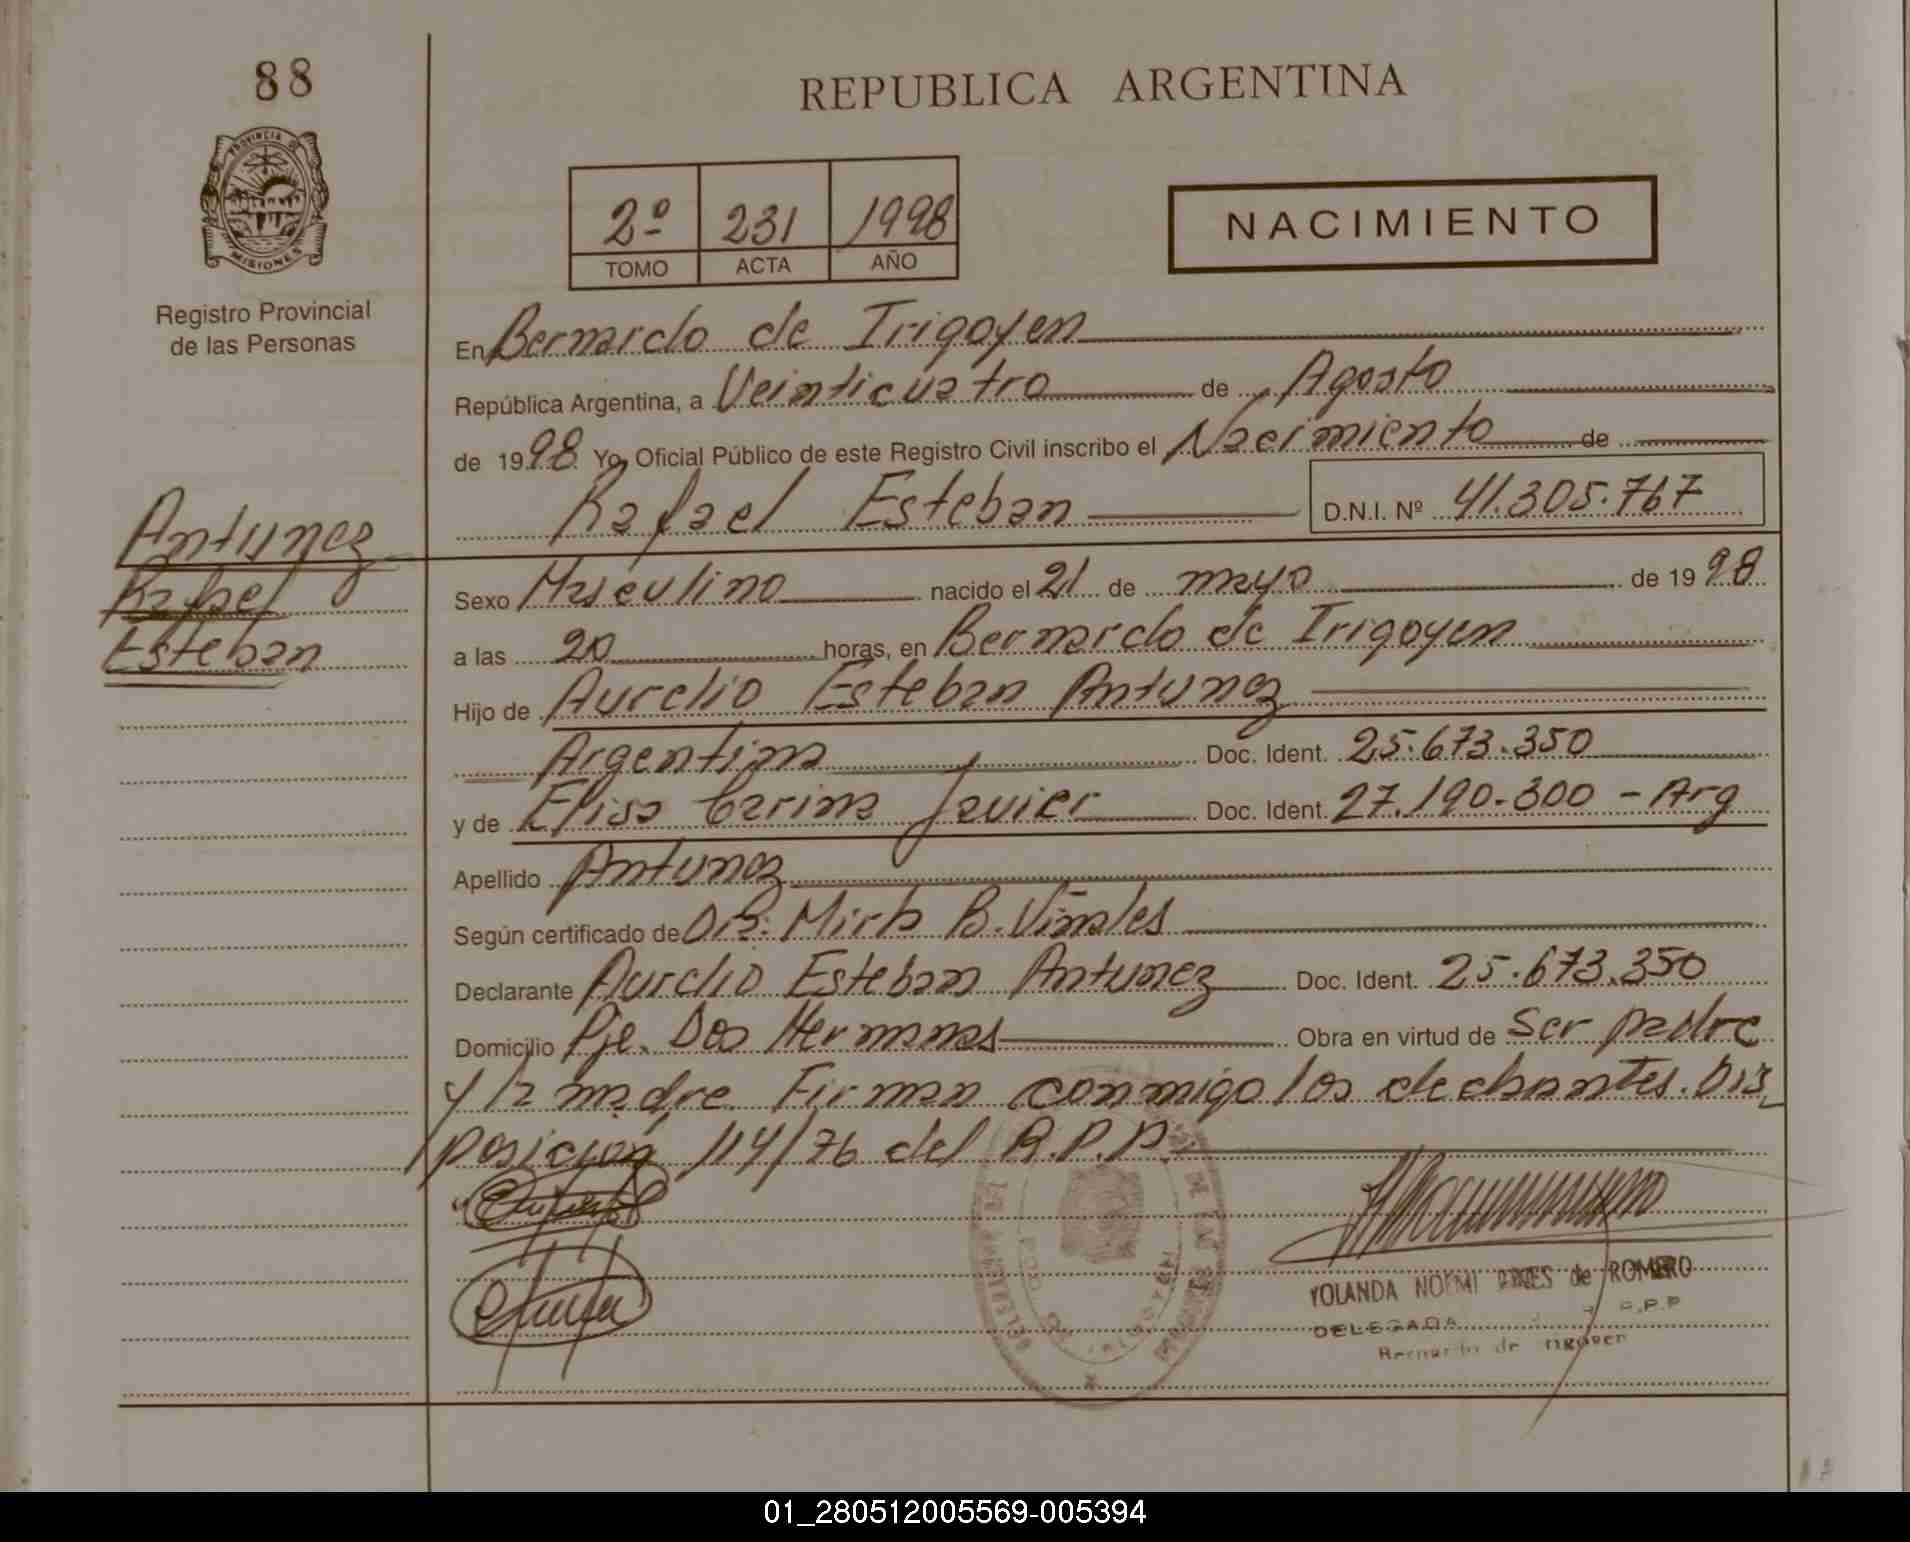 88
REPUBLICA ARGENTINA
PROVINCIA DE
MISIONES
2º 231 1998
TOMO ACTA AÑO
NACIMIENTO
Registro Provincial
de las Personas
En Bernardo de Irigoyen
República Argentina, a Veinticuatro de Agosto
de 1998 Yo, Oficial Público de este Registro Civil inscribo el Nacimiento de
Rafael Esteban D.N.I. Nº 41.305.767
Antunez
Rafael
Esteban
Sexo Masculino nacido el 21 de mayo de 1998
a las 20 horas, en Bernardo de Irigoyen
Hijo de Aurelio Esteban Antunez
Argentina Doc. Ident. 25.673.350
y de Elisa Carina Javier Doc. Ident. 27.190.300 - Arg
Apellido Antunez
Según certificado de Dra: Mirta B. Viñales
Declarante Aurelio Esteban Antunez Doc. Ident. 25.673.350
Domicilio Pje. Dos Hermanas Obra en virtud de Ser padre
y la madre. Firman conmigo los declarantes. Dis
posición 114/76 del R.P.P.
YOLANDA NOEMI de ROMERO
DELEGADA R.P.P
Bernardo de Irigoyen
01_280512005569-005394